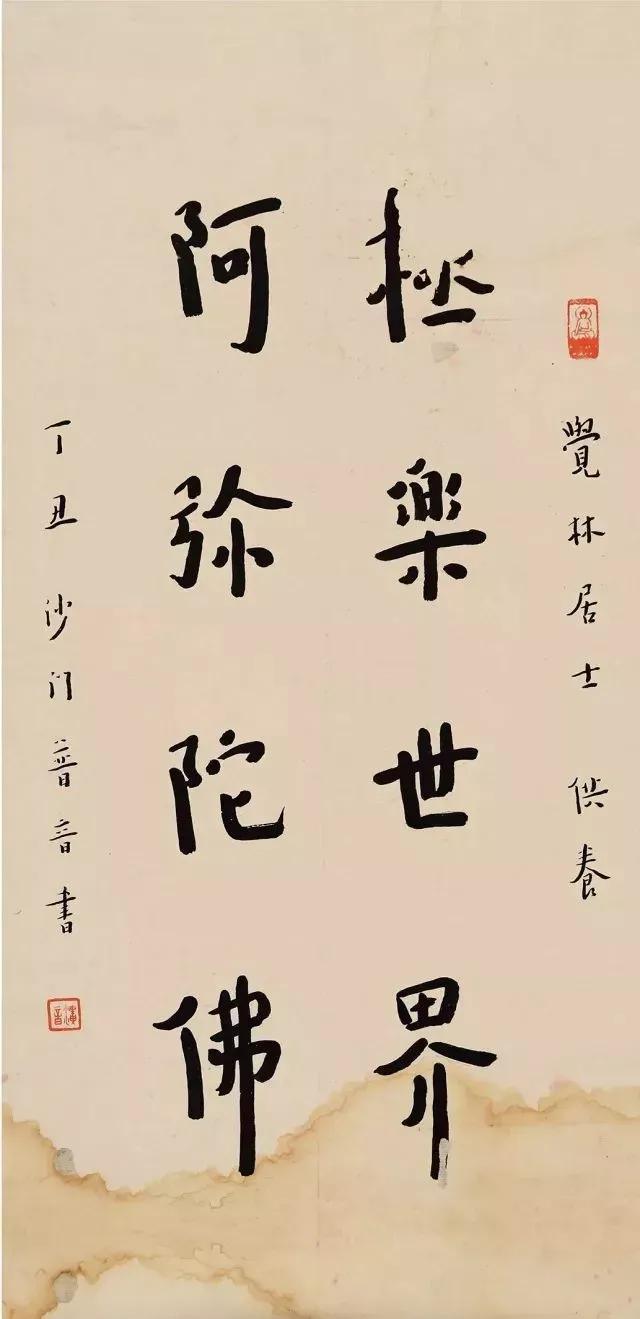 覺林居士 供養
極樂世界
阿弥陀佛
丁丑 沙门普音書
演音